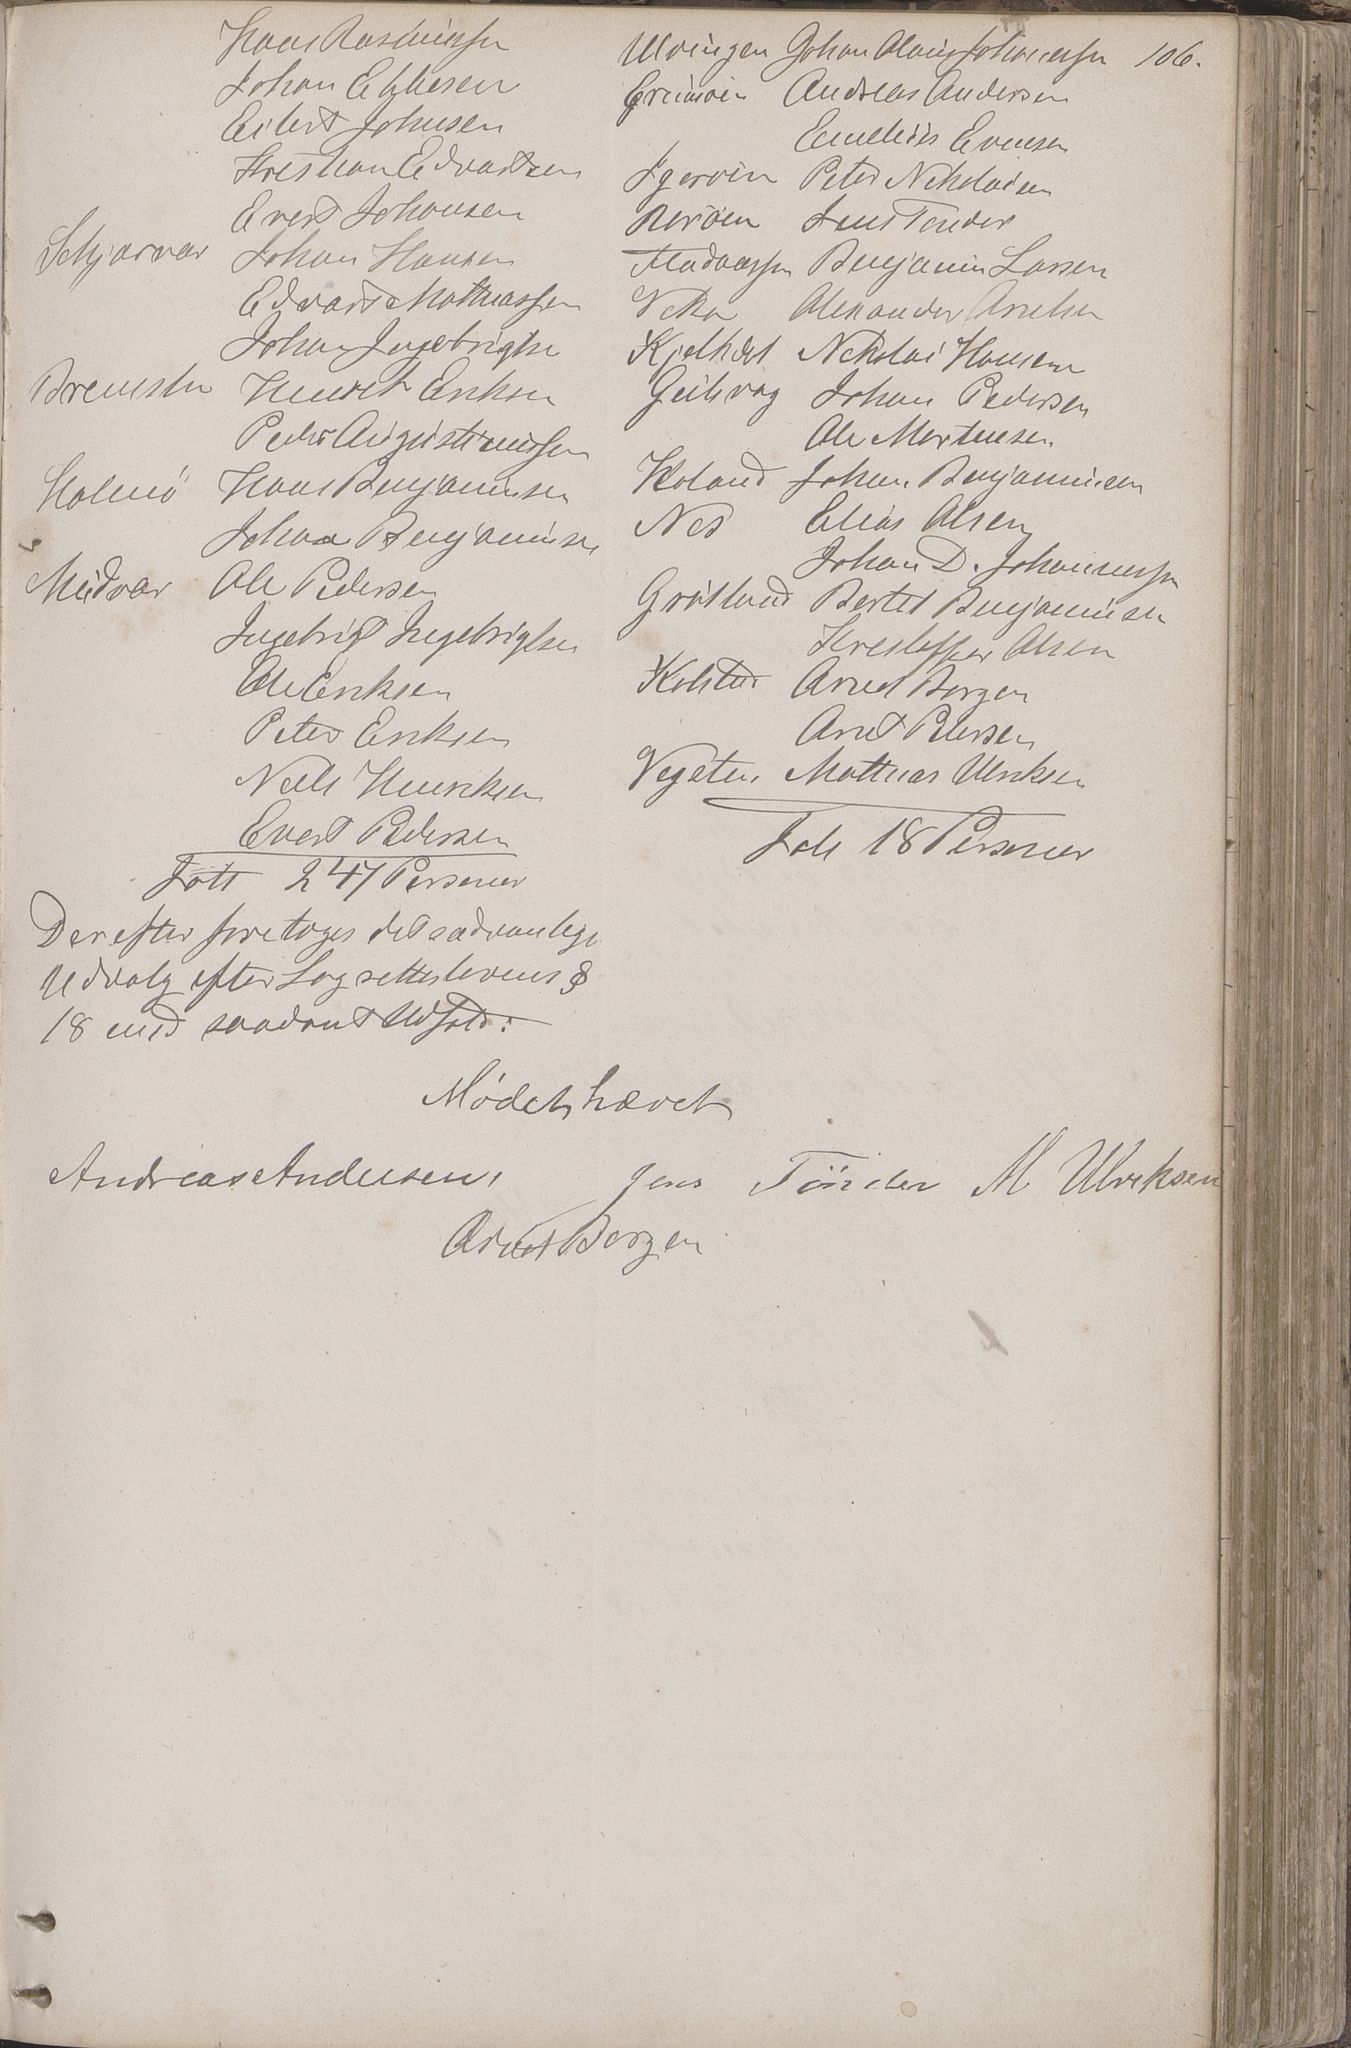 106.
Hans Rasmussen
Johan Ebbesen
Eilert Johnsen
Kristian Edvardsen
Evert Johansen
Skjarvær Johan Hansen
Edvard Mathiassen
Johan Ingebrigtsen
Bremsten Henrik Eriksen
Peder Augustinussen
Holmö Hans Benjaminsen
Johan Benjaminsen
Midvær Ole Pedersen
Ingebrigt Ingebrigtsen
Ole Eriksen
Peter Eriksen
Neels Henriksen
Evert Pedersen
247 Personer
Derefter foretoges det sædvanlige
Udvalg efter Lagrettelovens §
18 med saadant Udfald:
Ulvingen Johan Johannessen
Andreas Andersen
Evensen
Igerøen Peter Nikolaisen
Rørøen Jens Tønder
Benjamin Larsen
Alexander
Nikolai Hansen
Johan Pedersen
Ole Mortensen
Johan Benjaminsen
Nes Elias Olsen
Johan D. Johannessen
Grøtland Bertel Benjaminsen
Kristoffer Olsen
Arnt Borgen
Arnt Petersen
Vegsten Mathias Ulriksen
18 Personer
Mødet hævet
Andreas Andersen, Jens Tönder M Ulriksen
Arnt Borgen